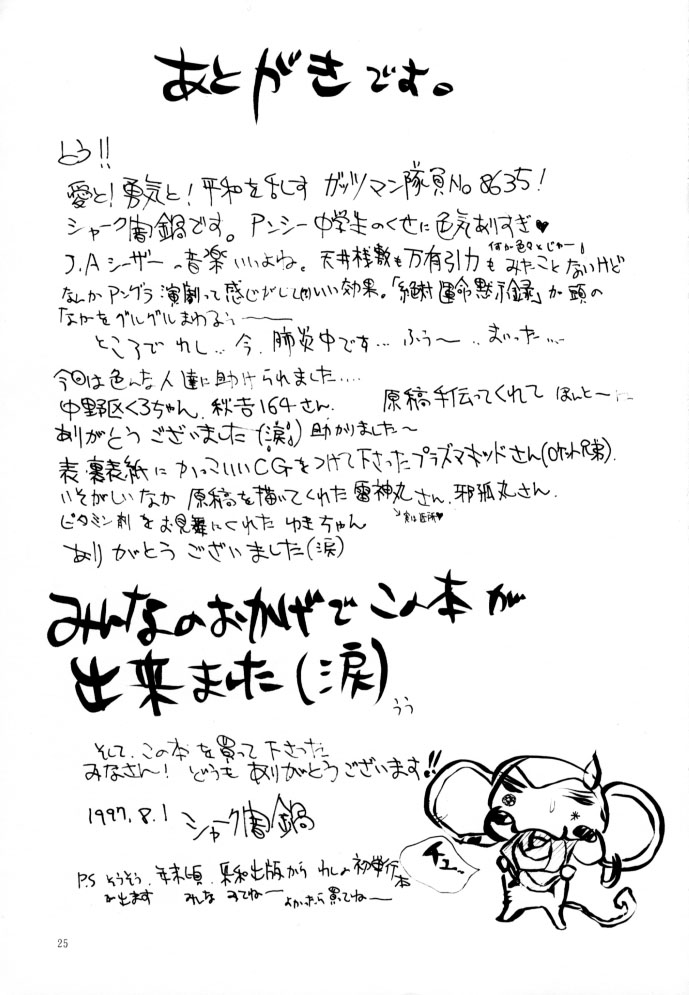 あとがきです。
とう!!
愛と!勇気と!平和を乱しす ガッツマン隊員No 8635!
シャーク闇鍋です。アンシー中学生のくせに色気ありすぎ♥
J.Aシーザーの音楽いいよね。天井桟敷も万有引力もみたことないけど
なんかアングラ演劇って感じがしていい効果。「絶対運命黙示録」が頭の
なかをグルグルまわるぅ〜
ところでわし…今、肺炎中です…ふぅ〜…まいった…
今回は色んな人達に助けられました…
中野区くろちゃん、秋吉164さん、 原稿手伝ってくれて ほんと〜に
ありがとうございました(涙)助かりました〜
表・裏表紙にかっこいいCGをつけて下さったプラズマキッドさん(ロケット兄弟)、
いそがしいなか 原稿を描いてくれた 雷神丸さん、邪狐丸さん
ビタミン剤をお見舞にくれた ゆきちゃん
ありがとうございました(涙)
みんなのおかげでこの本が
出来ました(涙)
うぅ
そして、この本を買って下さった
みなさん! どうもありがとうございます!!
1997.8.1 シャーク闇鍋
チュー…
P.S そうそう、年末頃、 出版から わしの初単行本
を出ます みんな みてねー よかったら買ってねー
25